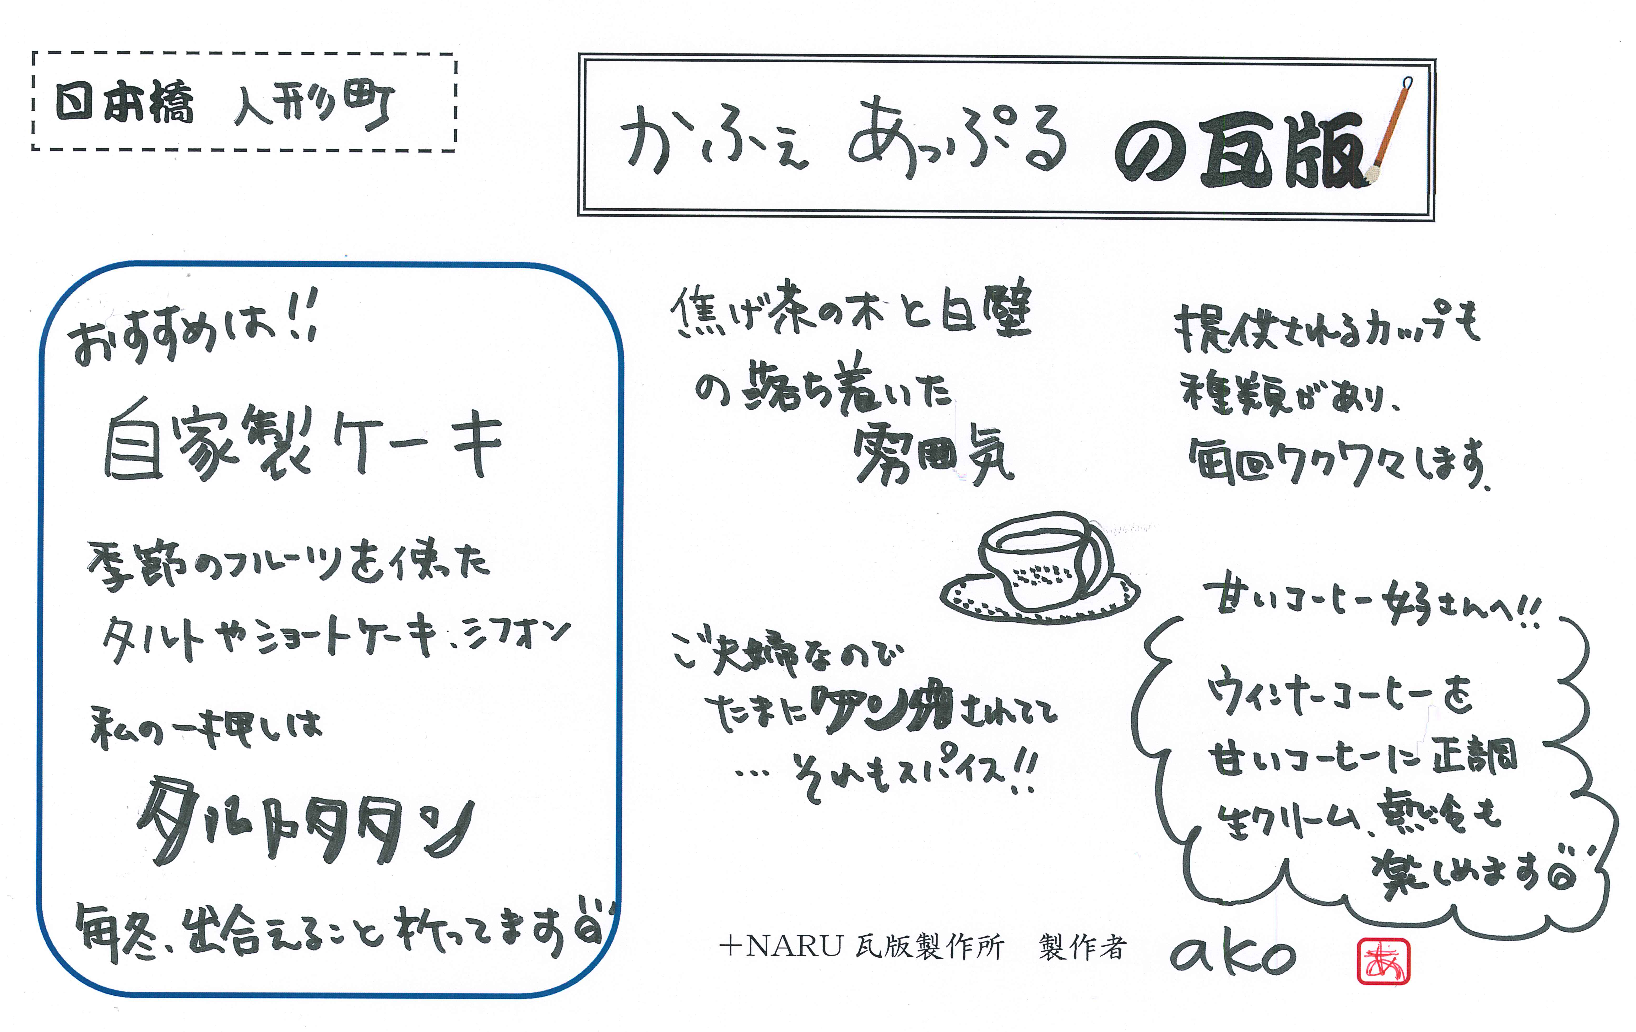 日本橋 人形町
かふぇ あっぷる の瓦版
おすすめは!!
自家製ケーキ
季節のフルーツを使った
タルトやショートケーキ、シフォン
私の一押しは
タルトタタン
毎冬、出合えること祈ってます
焦げ茶の木と白壁
の落ち着いた
雰囲気
ご夫婦なので
たまにケンカされてて
… それもスパイス!!
提供されるカップも
種類があり、
毎回ワクワクします。
甘いコーヒー好きさんへ!!
ウィンナーコーヒーを
甘いコーヒーに正調
生クリーム、熱冷も
楽しめます
+NARU 瓦版製作所 製作者 ako
あ